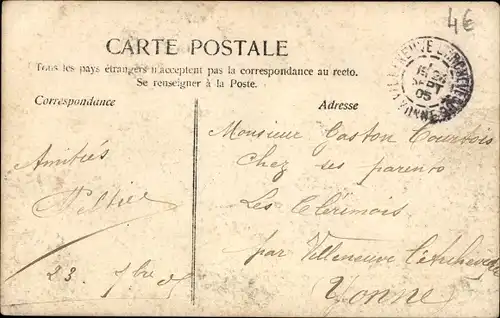 4€
CARTE POSTALE
Tous les pays étrangers n'acceptent pas la correspondance au recto.
Se renseigner à la Poste.
Correspondance
Adresse
Amitiés
Peltier
23. 7bre 05
Monsieur Gaston Courtois
Chez ses parents
Les Clérimois
par Villeneuve l'Archevêque
Yonne